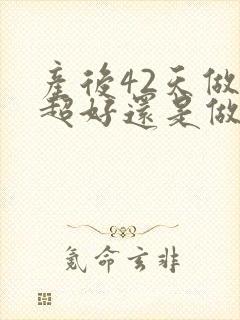 產後42天做
超好還是做
氪命玄非